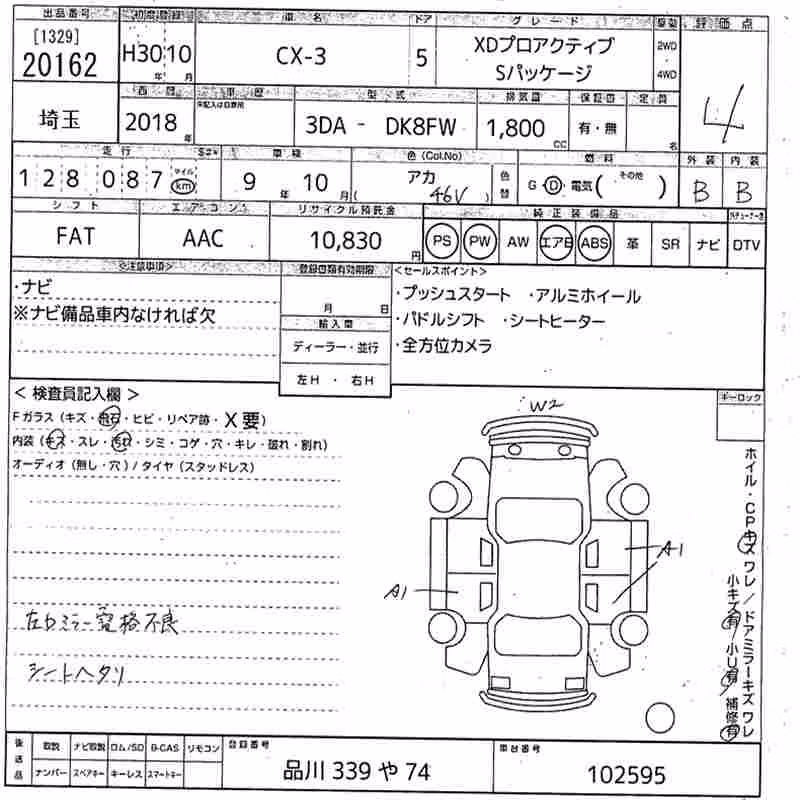 出品番号 初度登録 車名 ドア グレード 駆動 評価点
[1329]
20162 H30 10 年 月 CX-3 5 XDプロアクティブ 2WD
Sパッケージ 4WD
4
埼玉 西暦 車歴 型式 排気量 保証書 定員
未記入は自家用
2018 年 3DA - DK8FW 1,800 CC 有・無 名
走行 車検 色(Col.No) 燃料 外装 内装
128087 マイル km 9 年 10 月 アカ ( 46V ) 色替 G・D・電気( その他 ) B B
シフト エアコン リサイクル預託金 純正装備品
FAT AAC 10,830 円 PS PW AW エアB ABS 革 SR ナビ DTV
<注意事項> 登録書類有効期限 <セールスポイント>
・ナビ ・プッシュスタート ・アルミホイール
※ナビ備品車内なければ欠 月 日 ・パドルシフト ・シートヒーター
輸入車 ・全方位カメラ
ディーラー・並行
左H・右H
<検査員記入欄> キーロック
Fガラス(キズ・飛石・ヒビ・リペア跡・X要)
内装(キズ・スレ・汚れ・シミ・コゲ・穴・キレ・破れ・割れ)
オーディオ(無し・穴)/タイヤ(スタッドレス)
W2
A1
A1
左ドミラー電格不良
シートヘタリ
ホイル・CPキズ ワレ/ドアミラーキズ ワレ
小キズ有/小U有/補修有
後送品 取説 ナビ取説 ロム/SD B-CAS リモコン 登録番号 車台番号
ナンバー スペアキー キーレス スマートキー 品川 339 や 74 102595